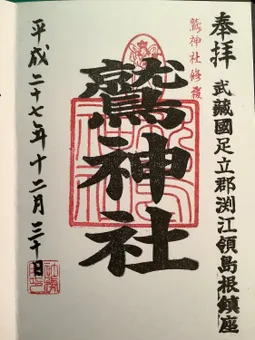 奉拝
武蔵國足立郡渕江領島根鎮座
鷲神社修復
鷲神社
平成二十七年十二月三十日